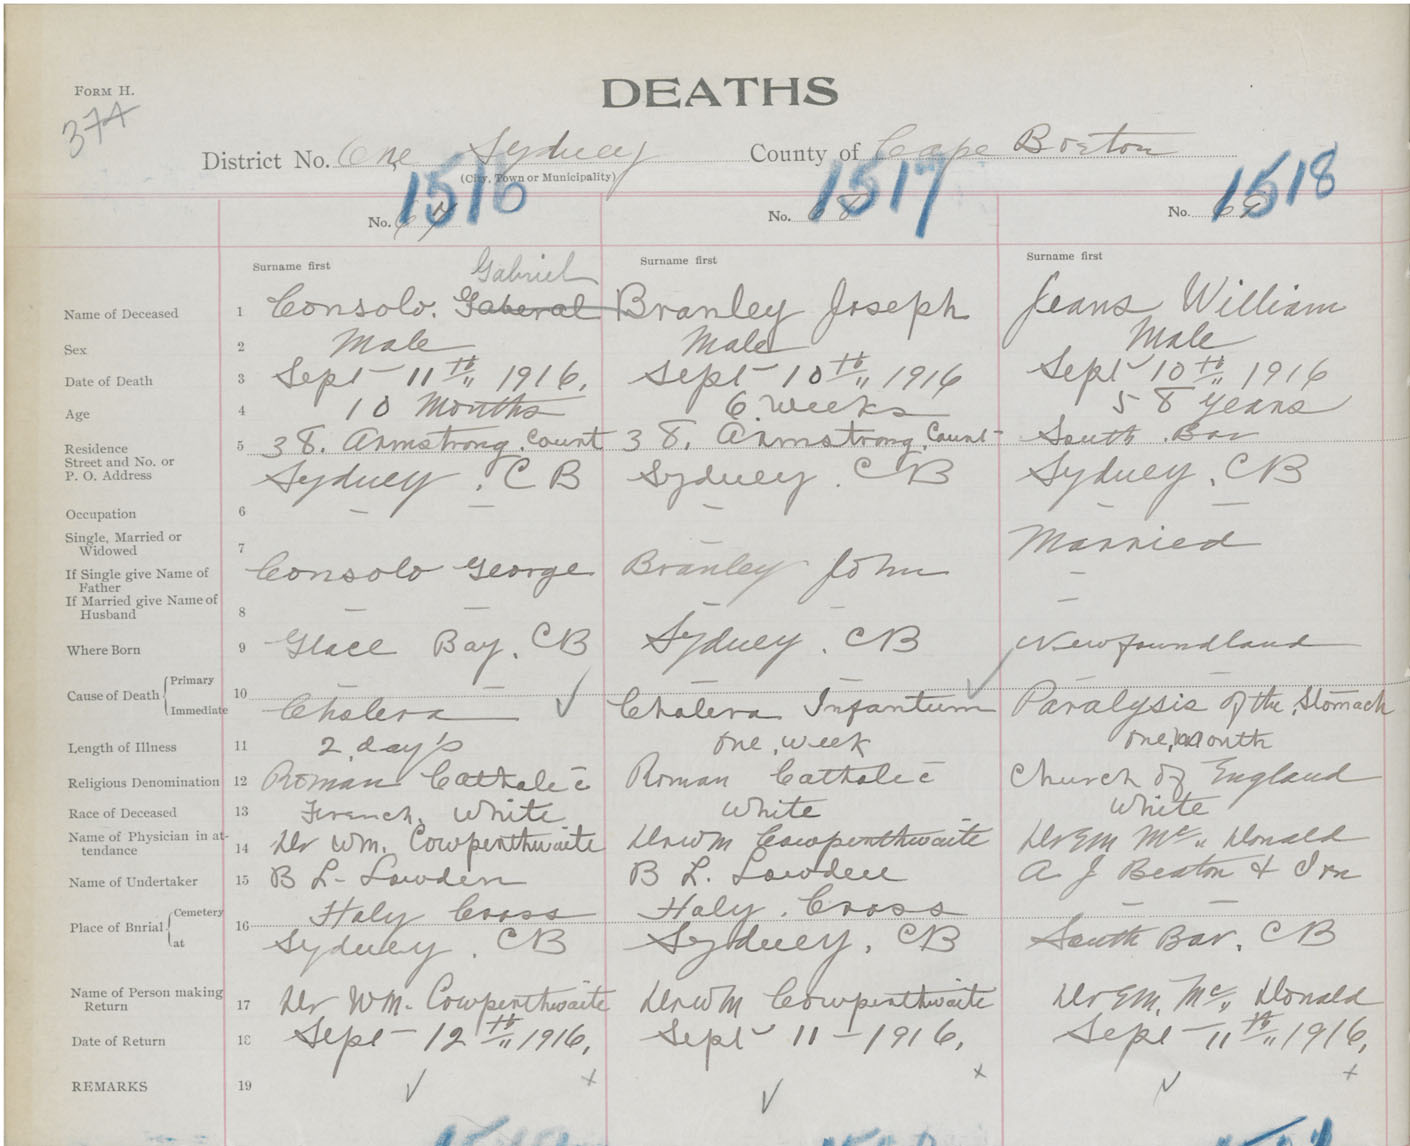 FORM H.
DEATHS
374
District No. One Sydney County of Cape Breton
(City, Town or Municipality)
1516 1517 1518
No. 67 No. 68 No. 69
Surname first Surname first Surname first
Gabriel
Name of Deceased 1 Consolo. Gaberal Branley Joseph Jeans William
Sex 2 Male Male Male
Date of Death 3 Sept 11th 1916. Sept 10th 1916 Sept 10th 1916
Age 4 10 Months 6 weeks 58 years
Residence 5 38. Armstrong. Court 38. Armstrong. Court South Bar
Street and No. or
P. O. Address Sydney. CB Sydney. CB Sydney. CB
Occupation 6 — — — — —
Single, Married or
Widowed 7 — Married
If Single give Name of
Father Consolo George Branley John —
If Married give Name of
Husband 8 — — — — —
Where Born 9 Glace Bay. CB Sydney. CB Newfoundland
Cause of Death { Primary — — — — — —
Immediate 10 Cholera ✓ Cholera Infantum ✓ Paralysis of the Stomach
Length of Illness 11 2 day's one week one month
Religious Denomination 12 Roman Catholic Roman Catholic Church of England
Race of Deceased 13 French. White White White
Name of Physician in at-
tendance 14 Dr Wm. Cowpenthwaite Dr Wm Cowpenthwaite Dr EM Mc Donald
Name of Undertaker 15 B L. Lowden B L. Lowden A J Beaton & Son
Place of Burial { Cemetery 16 Holy Cross Holy. Cross — —
at Sydney. CB Sydney. CB South Bar. CB
Name of Person making
Return 17 Dr WM. Cowpenthwaite Dr WM Cowpenthwaite Dr EM. Mc Donald
Date of Return 18 Sept 12th 1916. Sept 11 - 1916. Sept 11th 1916.
REMARKS 19 ✓ x ✓ x ✓ x